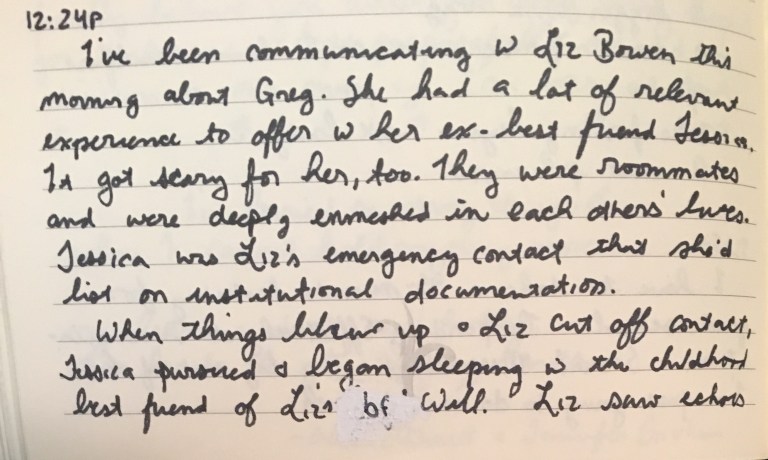 12:24P
I've been communicating w Liz Bowen this
morning about Greg. She had a lot of relevant
experience to offer w her ex-best friend Jessica.
It got scary for her, too. They were roommates
and were deeply enmeshed in each others' lives.
Jessica was Liz's emergency contact that she'd
list on institutional documentation.
When things blew up & Liz cut off contact,
Jessica pursued & began sleeping w the childhood
best friend of Liz's bf Will. Liz saw echoes